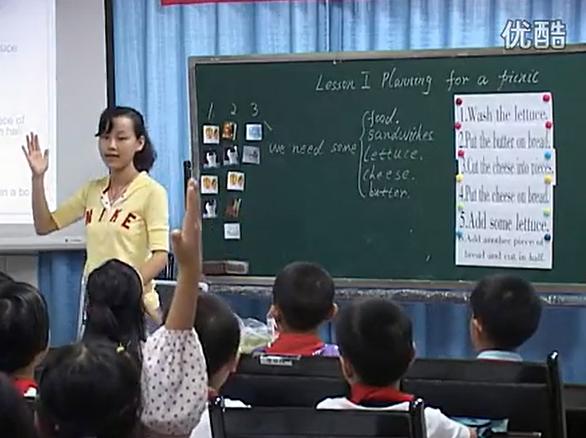 优酷
Lesson 1 Planning for a picnic
1 2 3
we need some
food.
sandwiches
lettuce.
cheese.
butter.
1.Wash the lettuce.
2.Put the butter on bread.
3.Cut the cheese into pieces.
4.Put the cheese on bread.
5.Add some lettuce.
6.Add another piece of
bread and cut in half.
NIKE